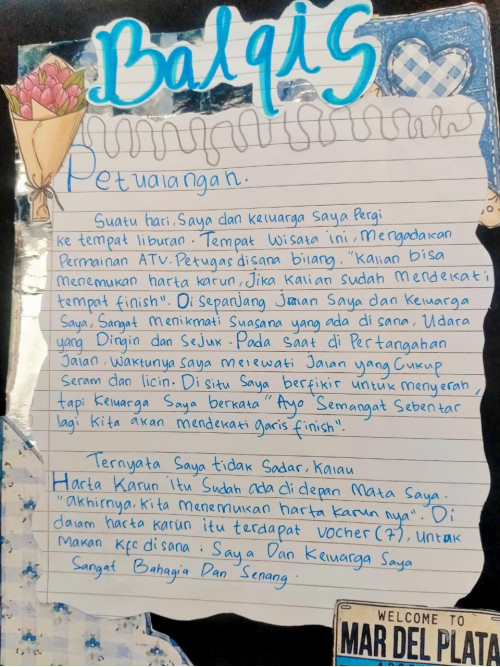 Balqis
Petualangan.
Suatu hari, Saya dan keluarga saya Pergi
ke tempat liburan. Tempat wisata ini, Mengadakan
Permainan ATV. Petugas disana bilang, "Kalian bisa
menemukan harta karun, Jika kalian sudah mendekati
tempat finish". Di sepanjang Jalan Saya dan Keluarga
Saya, Sangat menikmati Suasana yang ada di sana, Udara
yang Dingin dan Sejuk. Pada saat di Pertangahan
Jalan, waktunya saya melewati Jalan yang Cukup
Seram dan licin. Di situ Saya berfikir untuk menyerah,
tapi Keluarga Saya berkata "Ayo Semangat Sebentar
lagi Kita akan mendekati garis finish".
Ternyata Saya tidak Sadar, Kalau
Harta Karun itu Sudah ada di depan Mata Saya.
"akhirnya, Kita menemukan harta karun nya". Di
dalam harta karun itu terdapat vocher (7), untuk
Makan Kfc disana. Saya Dan Keluarga Saya
Sangat Bahagia Dan Senang.
WELCOME TO
MAR DEL PLATA